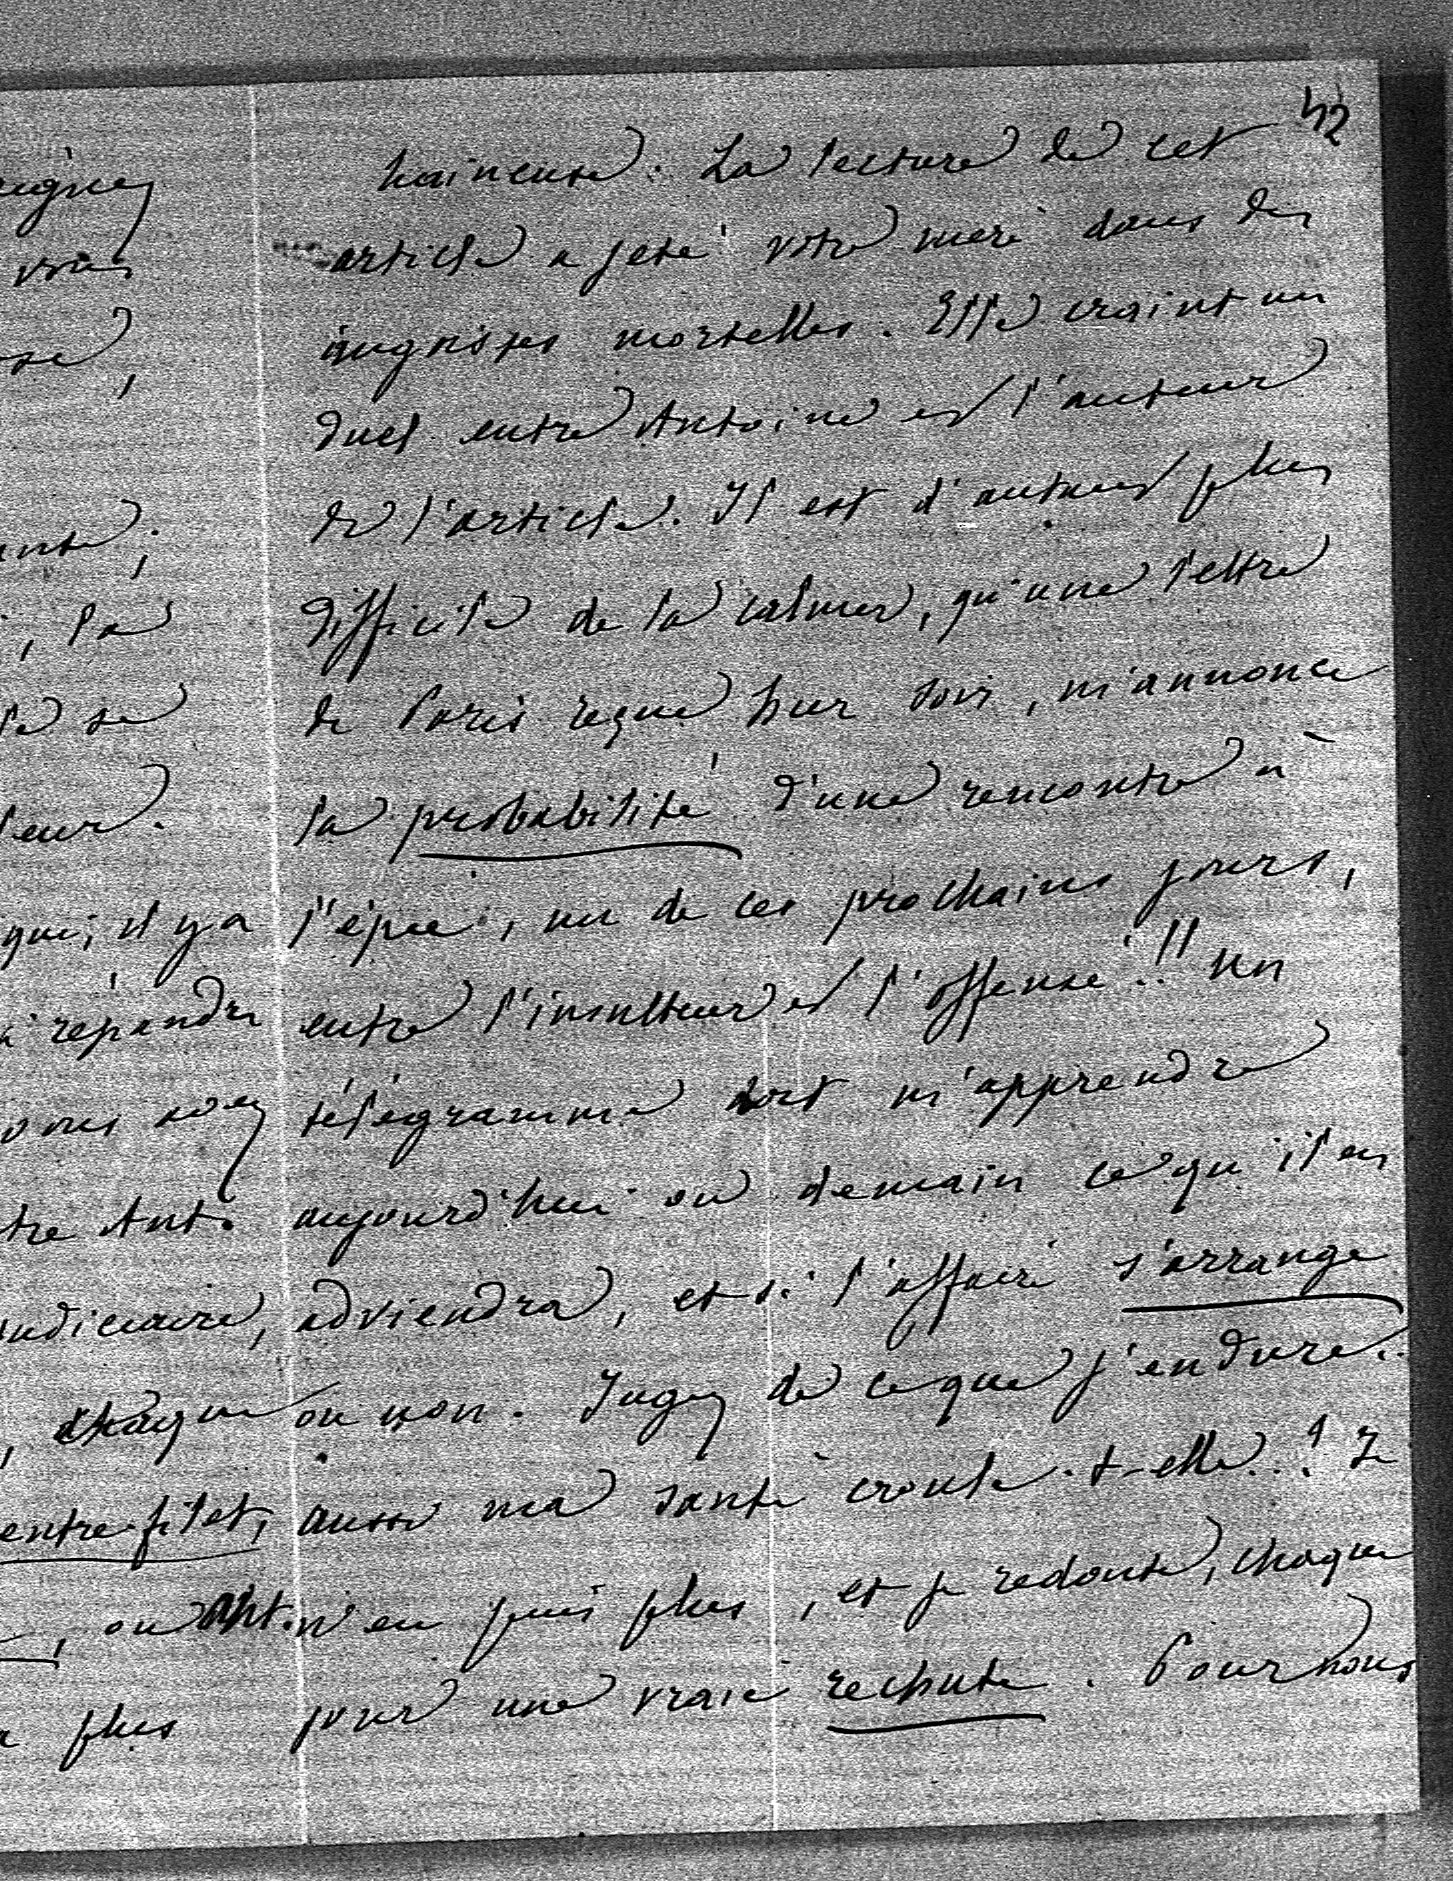 42
haineuse. La lecture de cet
article a jeté votre mère dans des
angoisses mortelles. Elle craint un
duel entre Antoine et l'auteur
de l'article. Il est d'autant plus
difficile de la calmer, qu'une lettre
de Paris reçue hier soir, m'annonce
la probabilité d'une rencontre à
l'épée, un de ces prochains jours,
entre l'insulteur et l'offensé!!! Un
télégramme doit m'apprendre
aujourd'hui ou demain ce qu'il en
adviendra, et si l'affaire s'arrange
ou non. Jugez de ce que j'endure..
aussi ma santé croule-t-elle..! Je
n'en puis plus, et je redoute, chaque
jour une vraie rechute. Pour nous
vous
;
, la
se
leur.
qui, il y a
à répandre
vous
tre Ant.
udiciaire,
, chaque
entrefilet,
, ou Ant.
plus